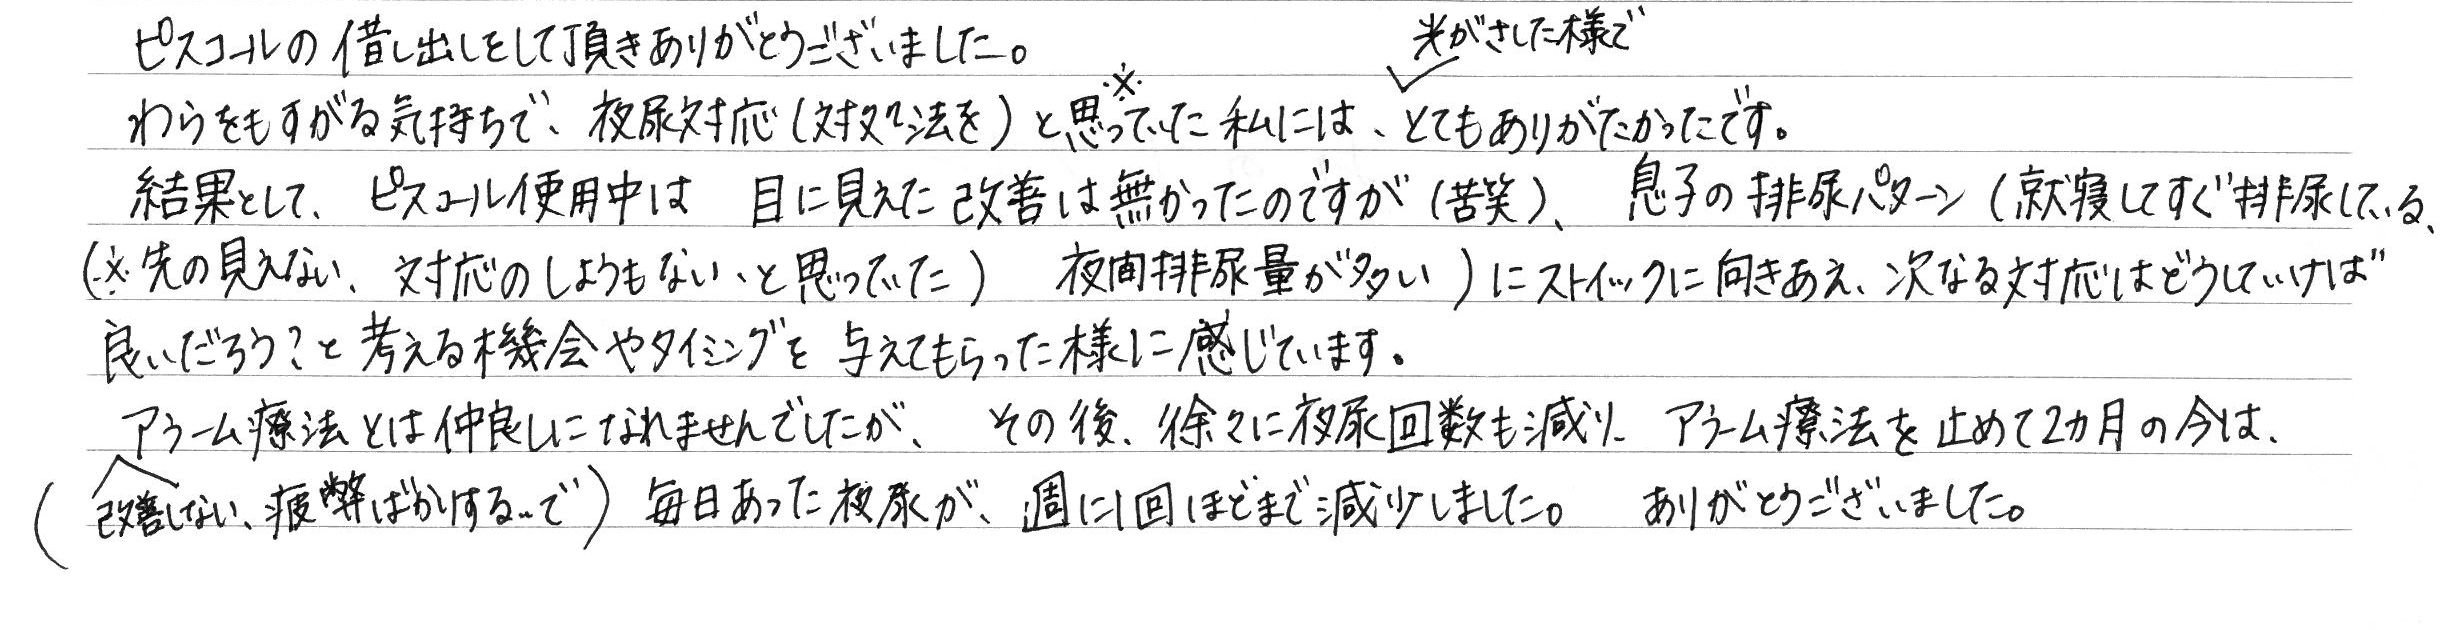 ピスコールの借し出しをして頂きありがとうございました。
光がさした様で
わらをもすがる気持ちで、夜尿対応(対処法を)と思っ※ていた私には、とてもありがたかったです。
結果として、ピスコール使用中は 目に見えた改善は無かったのですが(苦笑)、息子の排尿パターン(就寝してすぐ排尿している、
(※先の見えない、対応のしようもない、と思っていた) 夜間排尿量が多い)にストイックに向きあえ、次なる対応はどうしていけば
良いだろう?と考える機会やタイミングを与えてもらった様に感じています。
アラーム療法とは仲良しになれませんでしたが、その後、徐々に夜尿回数も減り、アラーム療法を止めて2カ月の今は、
(改善しない、疲弊ばかりする..で) 毎日あった夜尿が、週に1回ほどまで減少しました。 ありがとうございました。